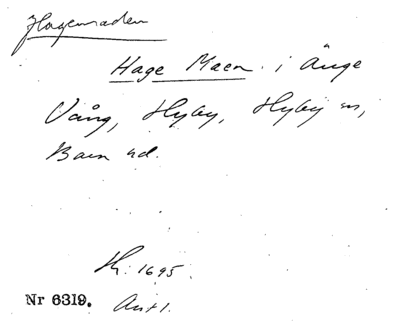 Hagemaden
Hage Maen i Änge
Vång, Hyby, Hyby sn,
Bara hd.
Lh. 1695.
Nr 6319. Ant 1.